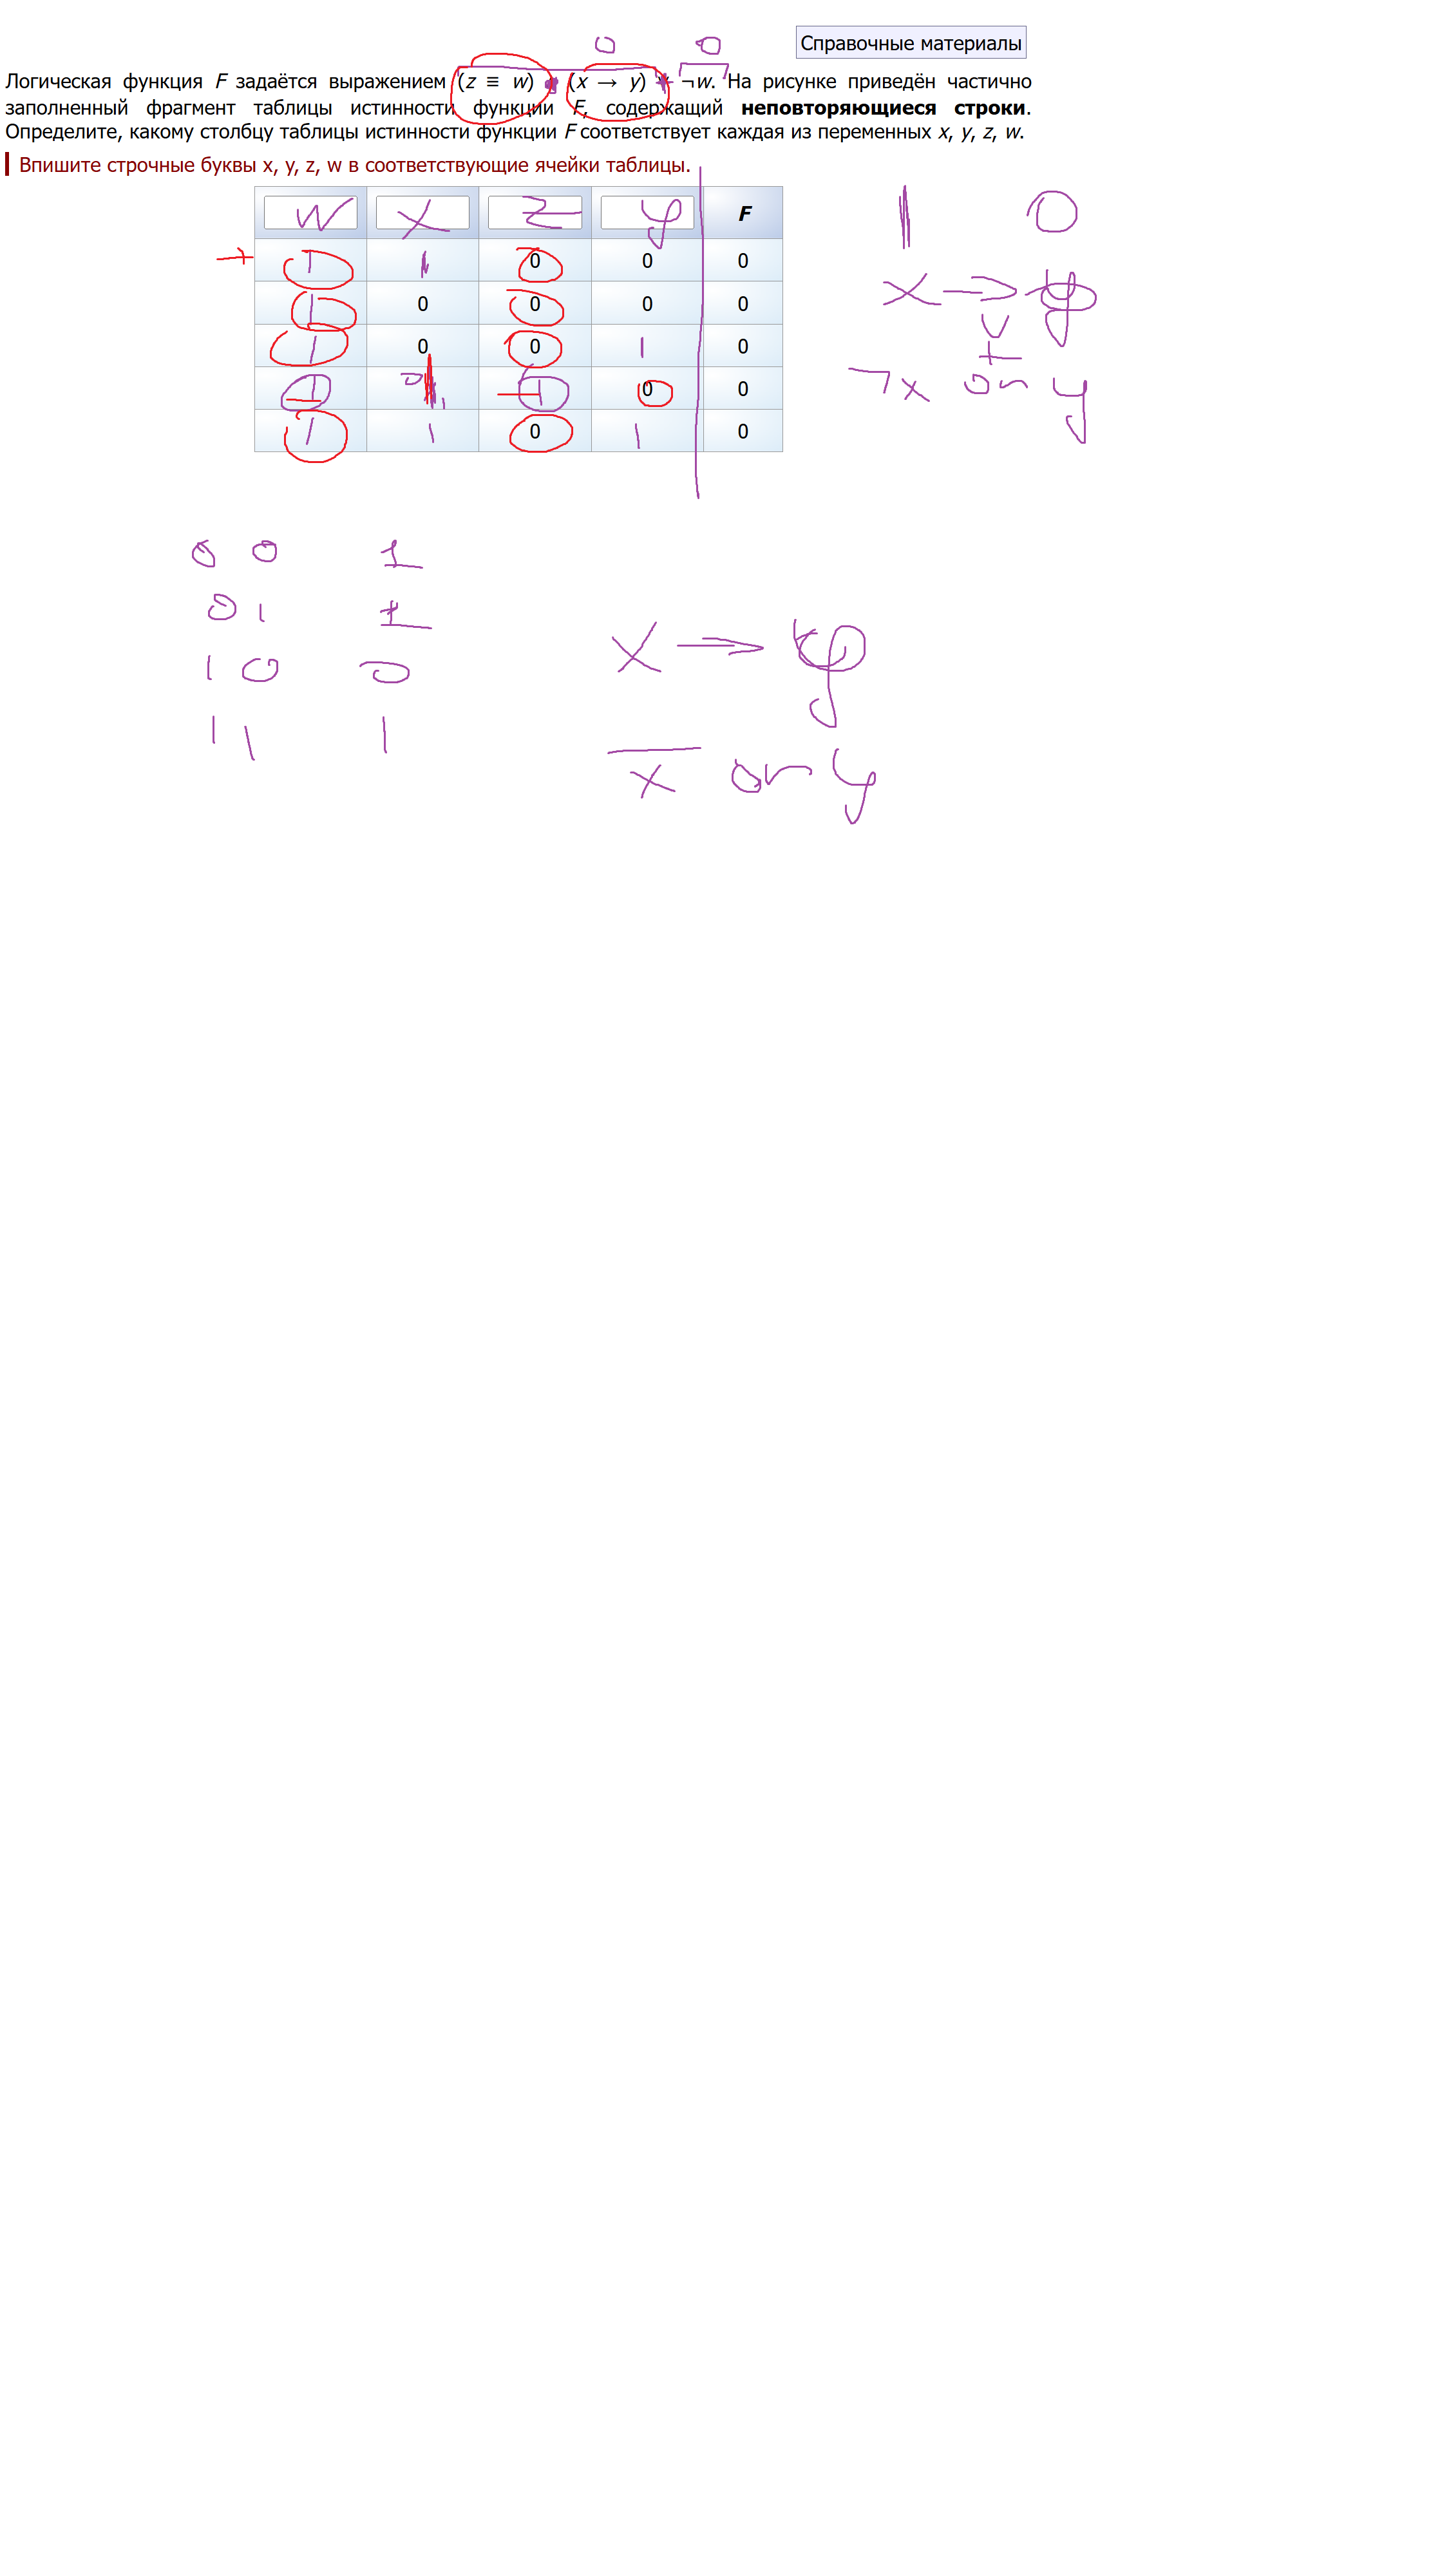 0 0
Справочные материалы
Логическая функция F задаётся выражением (z ≡ w) (x → y) ¬w. На рисунке приведён частично
заполненный фрагмент таблицы истинности функции F, содержащий неповторяющиеся строки.
Определите, какому столбцу таблицы истинности функции F соответствует каждая из переменных x, y, z, w.
Впишите строчные буквы x, y, z, w в соответствующие ячейки таблицы.
w x z y F
1 1 0 0 0
1 0 0 0 0
1 0 0 1 0
1 1 0 0
1 1 0 1 0
1 0
x → y
v
+
¬x or y
0 0 1
0 1 1
1 0 0
1 1 1
x → y
x or y